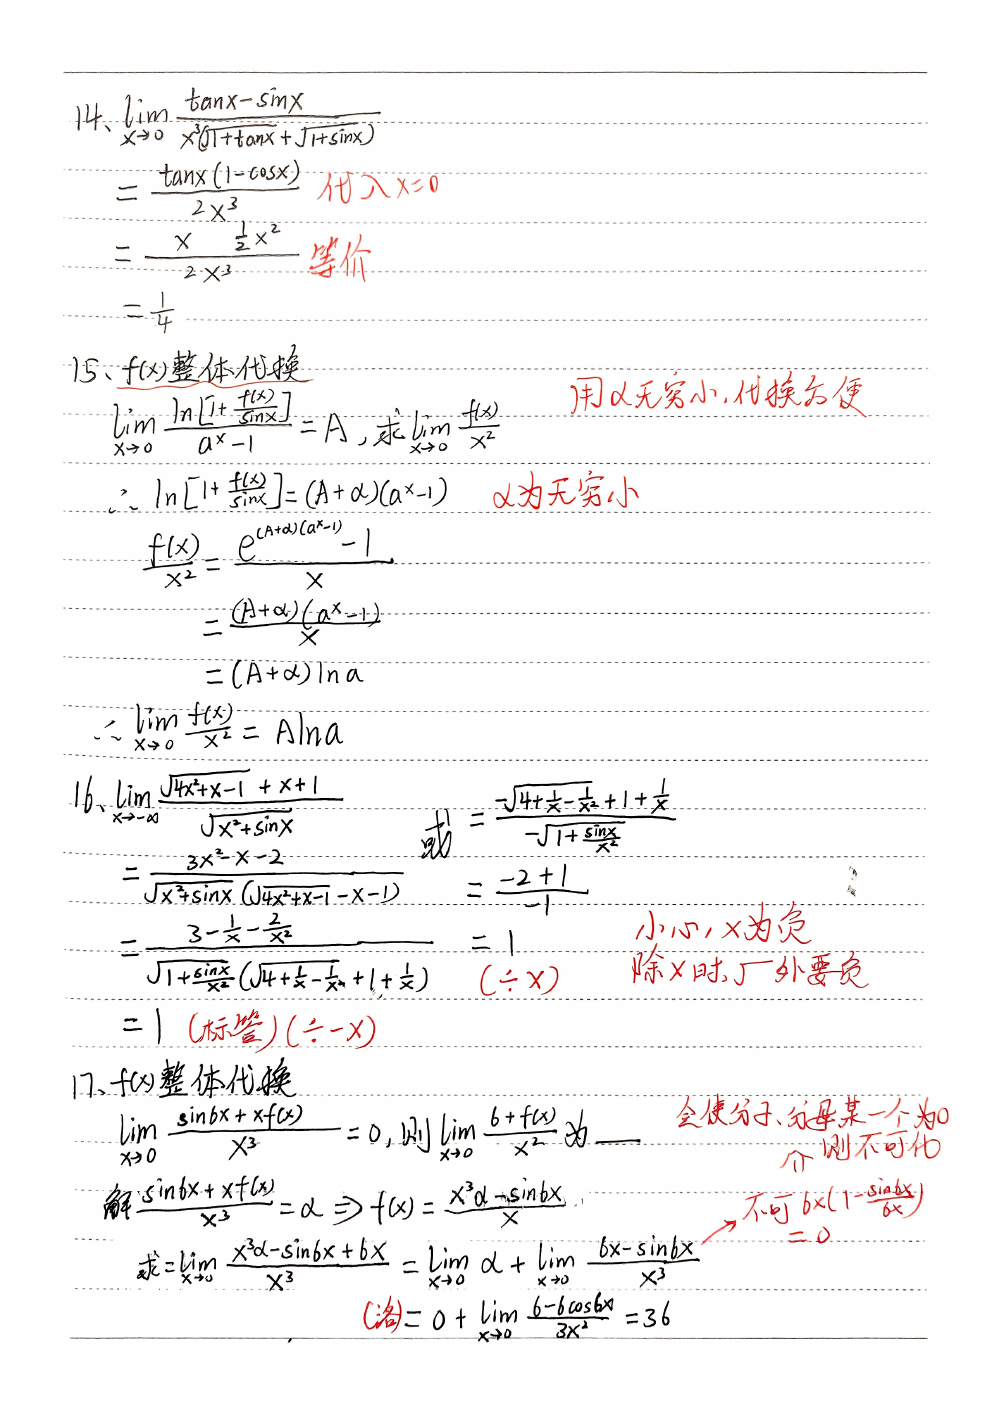 14、lim x→0 (tanx-sinx)/(x³(√(1+tanx)+√(1+sinx)))
= tanx(1-cosx)/(2x³) 代入x=0
= x ½x²/(2x³) 等价
= 1/4
15、f(x)整体代换
用α无穷小,代换方便
lim x→0 ln[1+f(x)/sinx]/(aˣ-1) = A, 求lim x→0 f(x)/x²
∴ ln[1+f(x)/sinx]=(A+α)(aˣ-1) α为无穷小
f(x)/x² = (e^((A+α)(aˣ-1))-1)/x
= (A+α)(aˣ-1)/x
=(A+α)lna
∴ lim x→0 f(x)/x² = Alna
16、lim x→-∞ (√(4x²+x-1)+x+1)/√(x²+sinx)
= (3x²-x-2)/(√(x²+sinx)(√(4x²+x-1)-x-1))
= (3-1/x-2/x²)/(√(1+sinx/x²)(√(4+1/x-1/x²)+1+1/x))
=1 (标答)(÷-x)
或 = (-√(4+1/x-1/x²)+1+1/x)/(-√(1+sinx/x²))
= (-2+1)/(-1)
=1
(÷x)
小心,x为负
除x时,√外要负
17、f(x)整体代换
lim x→0 (sin6x+xf(x))/x³ =0,则lim x→0 (6+f(x))/x² 为___
会使分子、分母某一个为0
个 则不可代
解 (sin6x+xf(x))/x³ =α⇒f(x)=(x³α-sin6x)/x
不可6x(1-sin6x/6x)
=0
求=lim x→0 (x³α-sin6x+6x)/x³ = lim x→0 α+lim x→0 (6x-sin6x)/x³
(洛)=0+lim x→0 (6-6cos6x)/3x² =36